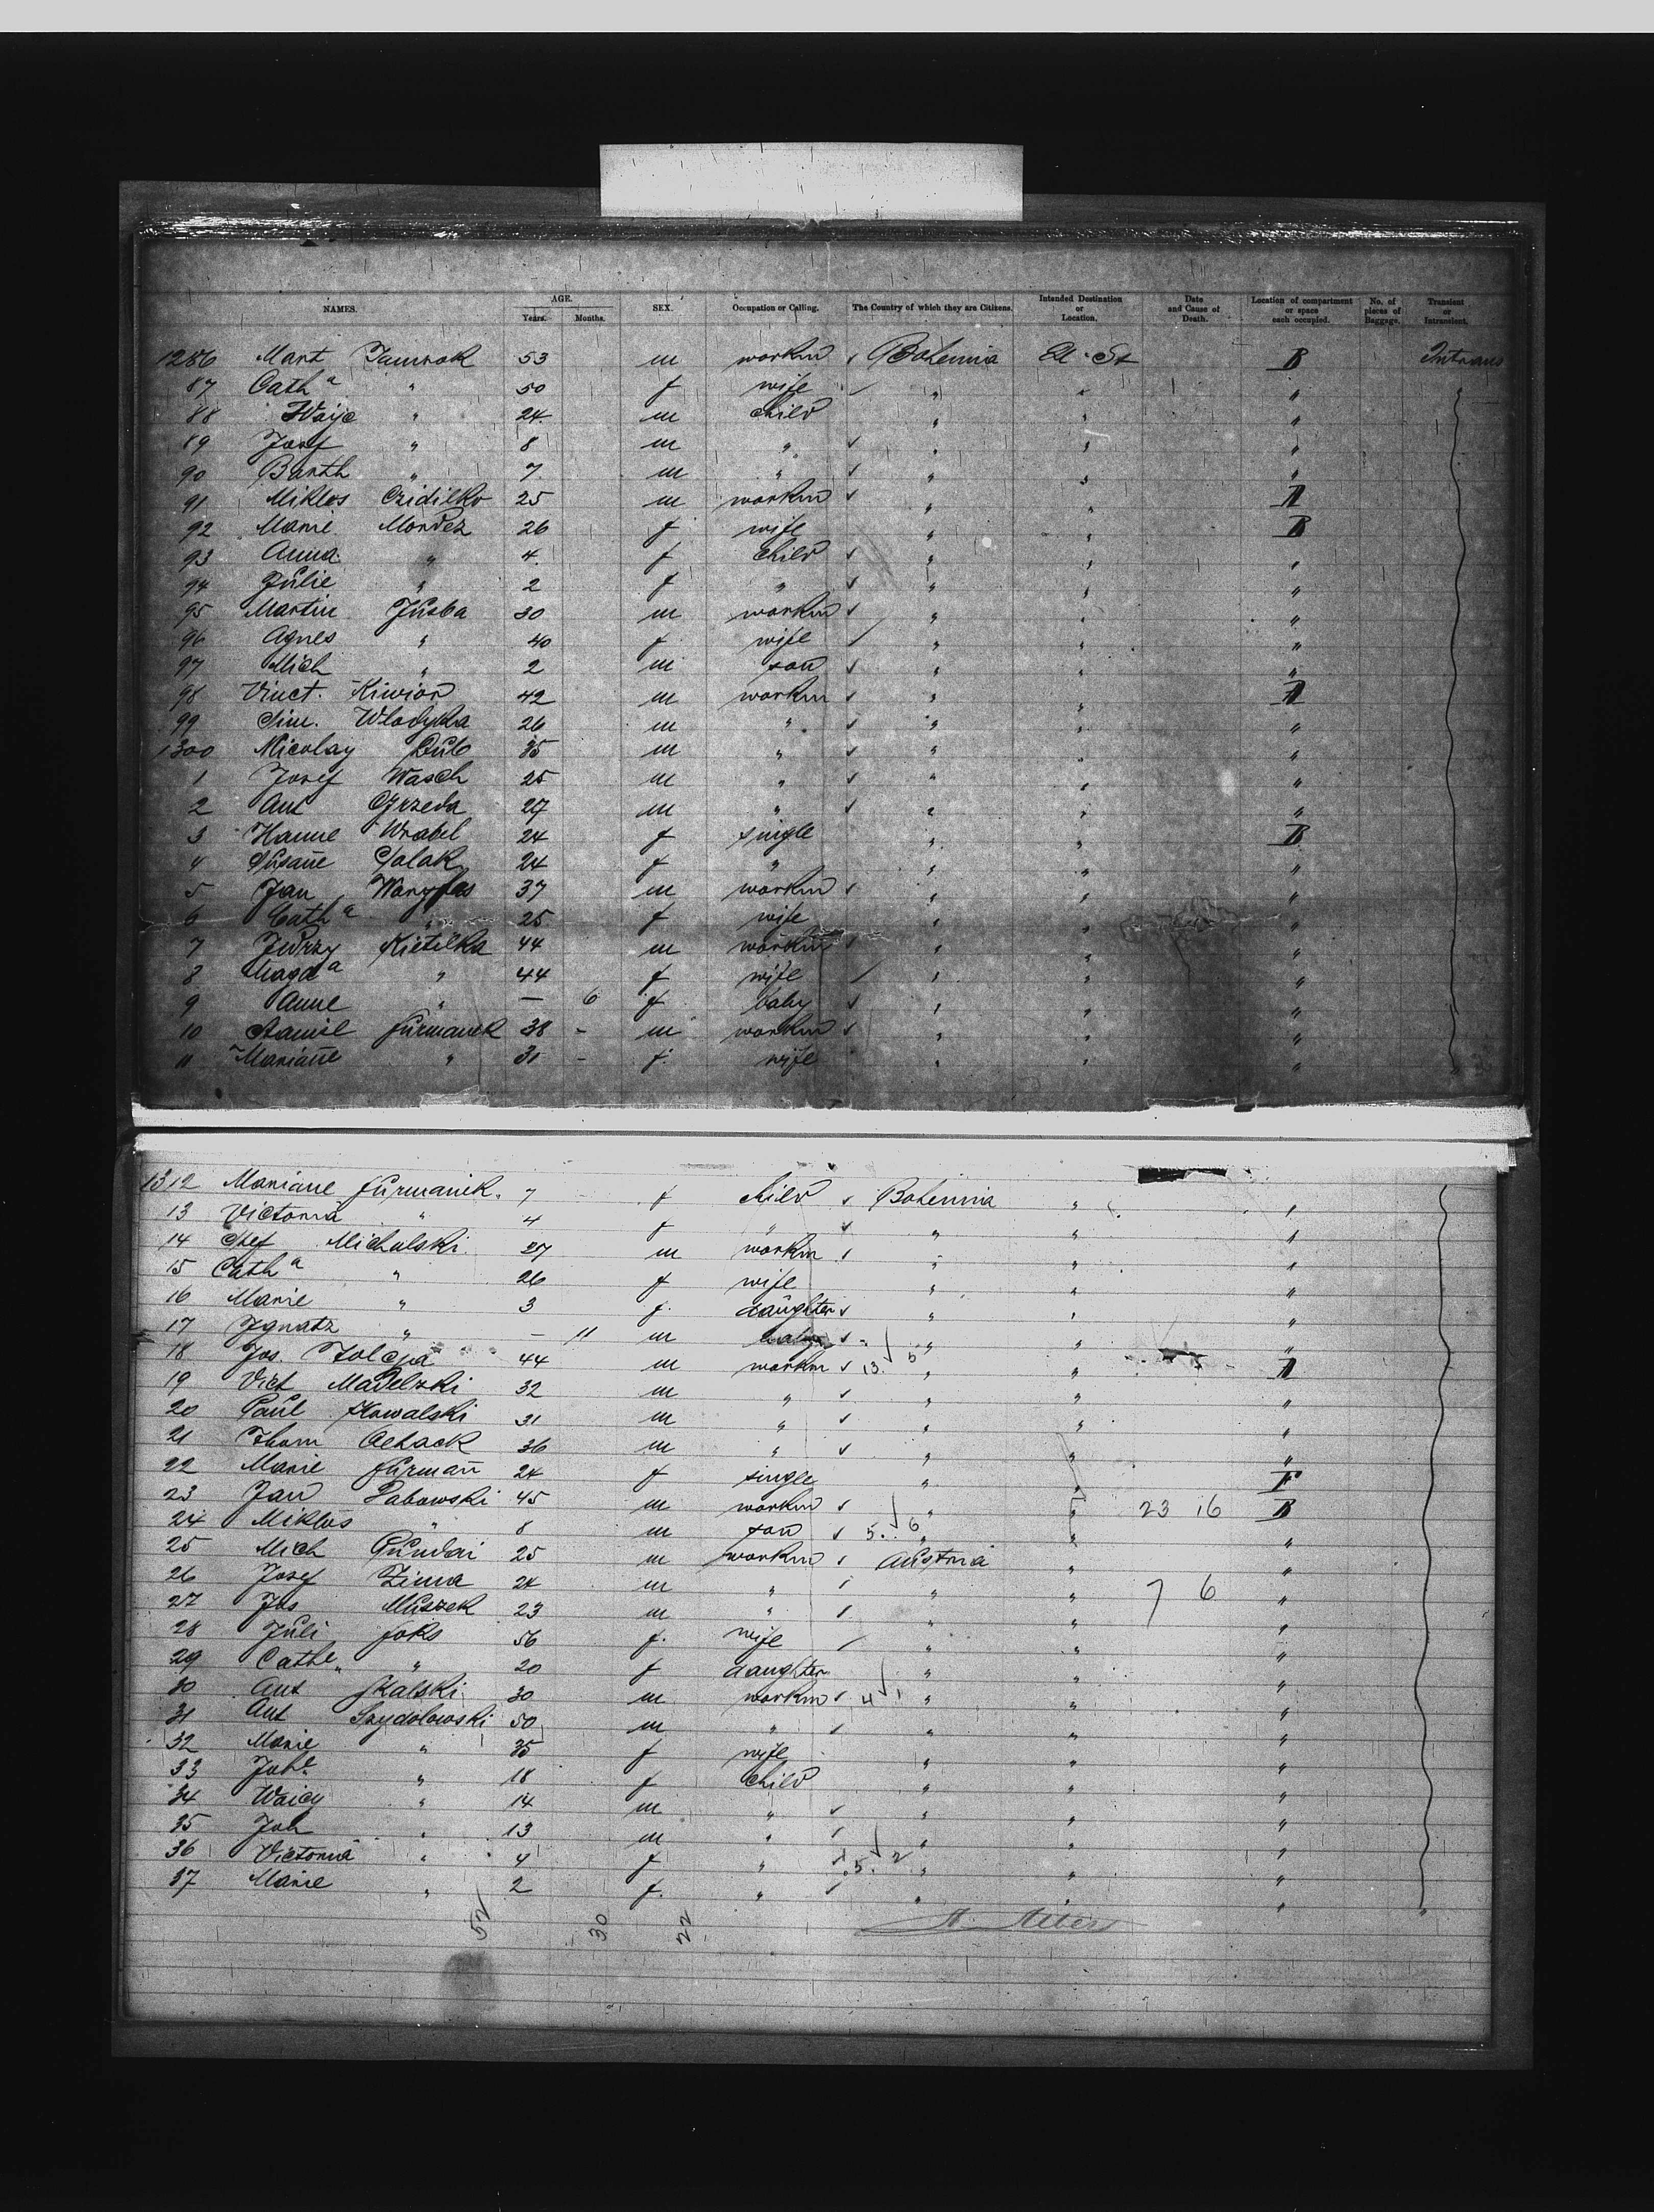 NAMES. AGE. Years. Months. SEX. Occupation or Calling. The Country of which they are Citizens. Intended Destination or Location. Date and Cause of Death. Location of compartment or space each occupied. No. of pieces of Baggage. Transient or Intransient.
1286 Mart 53 m workm ✓ Bohemia U. St B Intrans
87 Cath a " 50 f wife / " " "
88 " 24 m child " " "
89 Josef " 8 m " ✓ " " "
90 Barth " 7 m " ✓ " " "
91 Miklos Czidilko 25 m workm ✓ " " A
92 Marie Mondez 26 f wife " " B
93 Anna " 4 f child ✓ " " "
94 Julie " 2 f " ✓ " " "
95 Martin Jusba 30 m workm ✓ " " "
96 Agnes " 40 f wife / " " "
97 Mich " 2 m son ✓ " " "
98 Vinct. Kiwior 42 m workm ✓ " " A
99 Sim. Wlodyka 26 m " ✓ " " "
1300 Nicolay 35 m " ✓ " " "
1 Josef Wasch 25 m " ✓ " " "
2 Ant Grzeda 27 m " ✓ " " "
3 Hanne Wrabel 24 f single " " B
4 Susane 24 f " " " "
5 Jan 37 m workm ✓ " " "
6 Cath a " 25 f wife " " "
7 Kietilka 44 m workm ✓ " " "
8 Magd a " 44 f wife / " " "
9 Anne " — 6 f baby ✓ " " "
10 Furmanek 38 - m workm ✓ " " "
11 Mariane " 31 - f. wife " " " "
1312 Mariane Furmanek. 7 f child ✓ Bohemia " "
13 Victoria " 4 f " ✓ " " "
14 Michalski 27 m workm ✓ " " "
15 Cath a " 26 f wife " " "
16 Marie " 3 f. daughter ✓ " " "
17 Ignatz " — 11 m baby ✓ " " "
18 Jos. 44 m workm ✓ 13. 5 " " A
19 Vict Madelzki 32 m " ✓ " " "
20 Paul Kowalski 31 m " ✓ " " "
21 Thom 36 m " ✓ " " "
22 Marie Furman 24 f single " " F
23 Jan Labowski 45 m workm ✓ " " 23 16 B
24 Miklos " 8 m son ✓ 5. 6 " " "
25 Mich Gundai 25 m workm ✓ Austria " "
26 Josef Zima 24 m " ✓ " " 7 6 "
27 Jos Muszek 23 m " ✓ " " "
28 Juli Joks 56 f. wife / " " "
29 Cathe " 20 f daughter " " "
30 Ant Skalski 30 m workm ✓ 4 1 " " "
31 Ant Szydolowski 50 m " ✓ " " "
32 Marie " 35 f wife " " "
33 Joh e. " 18 f child " " "
34 Waicy " 14 m " ✓ " " "
35 Joh " 13 m " ✓ " " "
36 Victoria " 4 f " ✓ 5. 2 " " "
37 Marie " 2 f. " ✓ " " " "
52 30 22